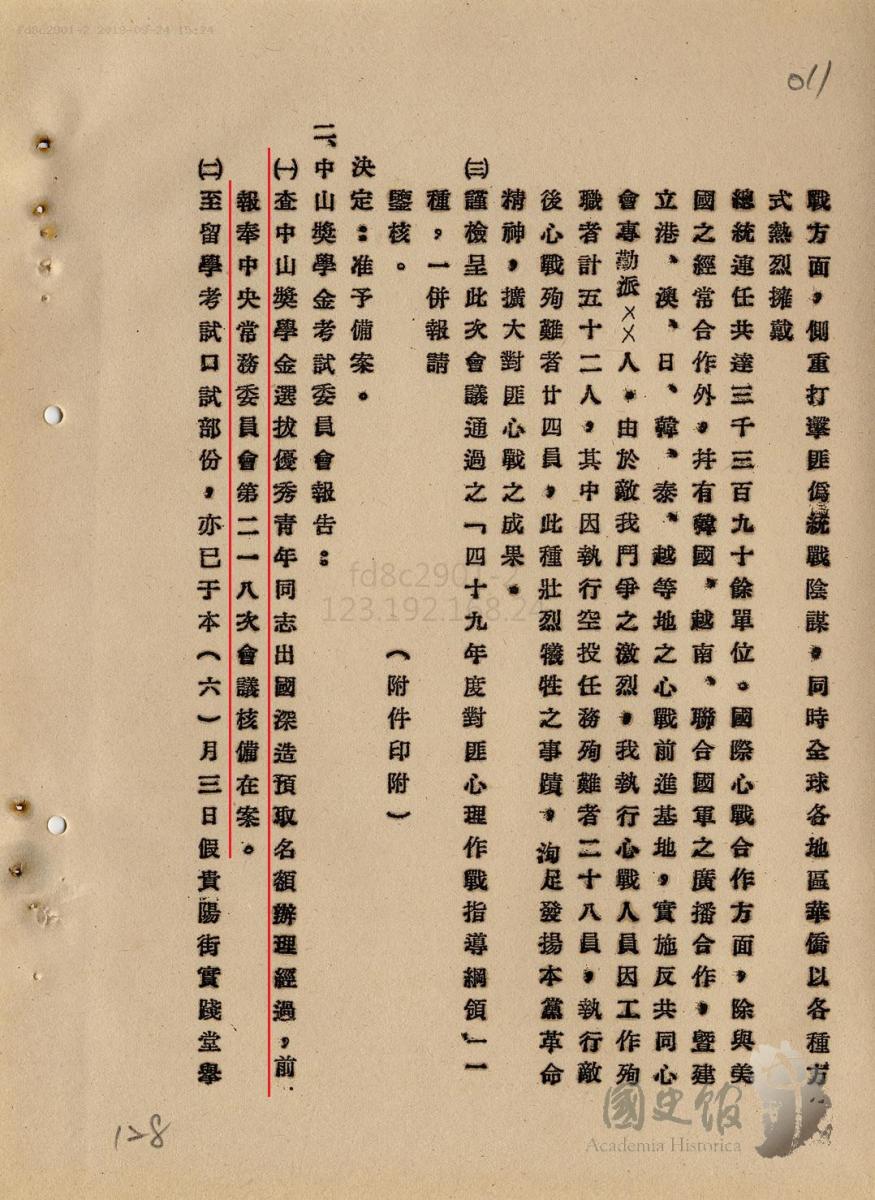 fd8c2901-2 2019-09-24 15:24
011
戰方面，側重打擊匪偽統戰陰謀，同時全球各地區華僑以各種方
式熱烈擁戴
總統連任共達三千三百九十餘單位。國際心戰合作方面，除與美
國之經常合作外，并有韓國、越南、聯合國軍之廣播合作，暨建
立港、澳、日、韓、泰、越等地之心戰前進基地，實施反共同心
會專勤派××人。由於敵我鬥爭之激烈，我執行心戰人員因工作殉
職者計五十二人，其中因執行空投任務殉難者二十八員，執行敵
後心戰殉難者廿四員，此種壯烈犧牲之事蹟，洵足發揚本黨革命
精神，擴大對匪心戰之成果。
㈢謹檢呈此次會議通過之「四十九年度對匪心理作戰指導綱領」一
種，一併報請
鑒核。（附件印附）
決定：准予備案。
二、中山獎學金考試委員會報告：
㈠查中山獎學金選拔優秀青年同志出國深造預取名額辦理經過，前
報奉中央常務委員會第二一八次會議核備在案。
㈡至留學考試口試部份，亦已于本（六）月三日假貴陽街實踐堂舉
128
國史館
Academia Historica